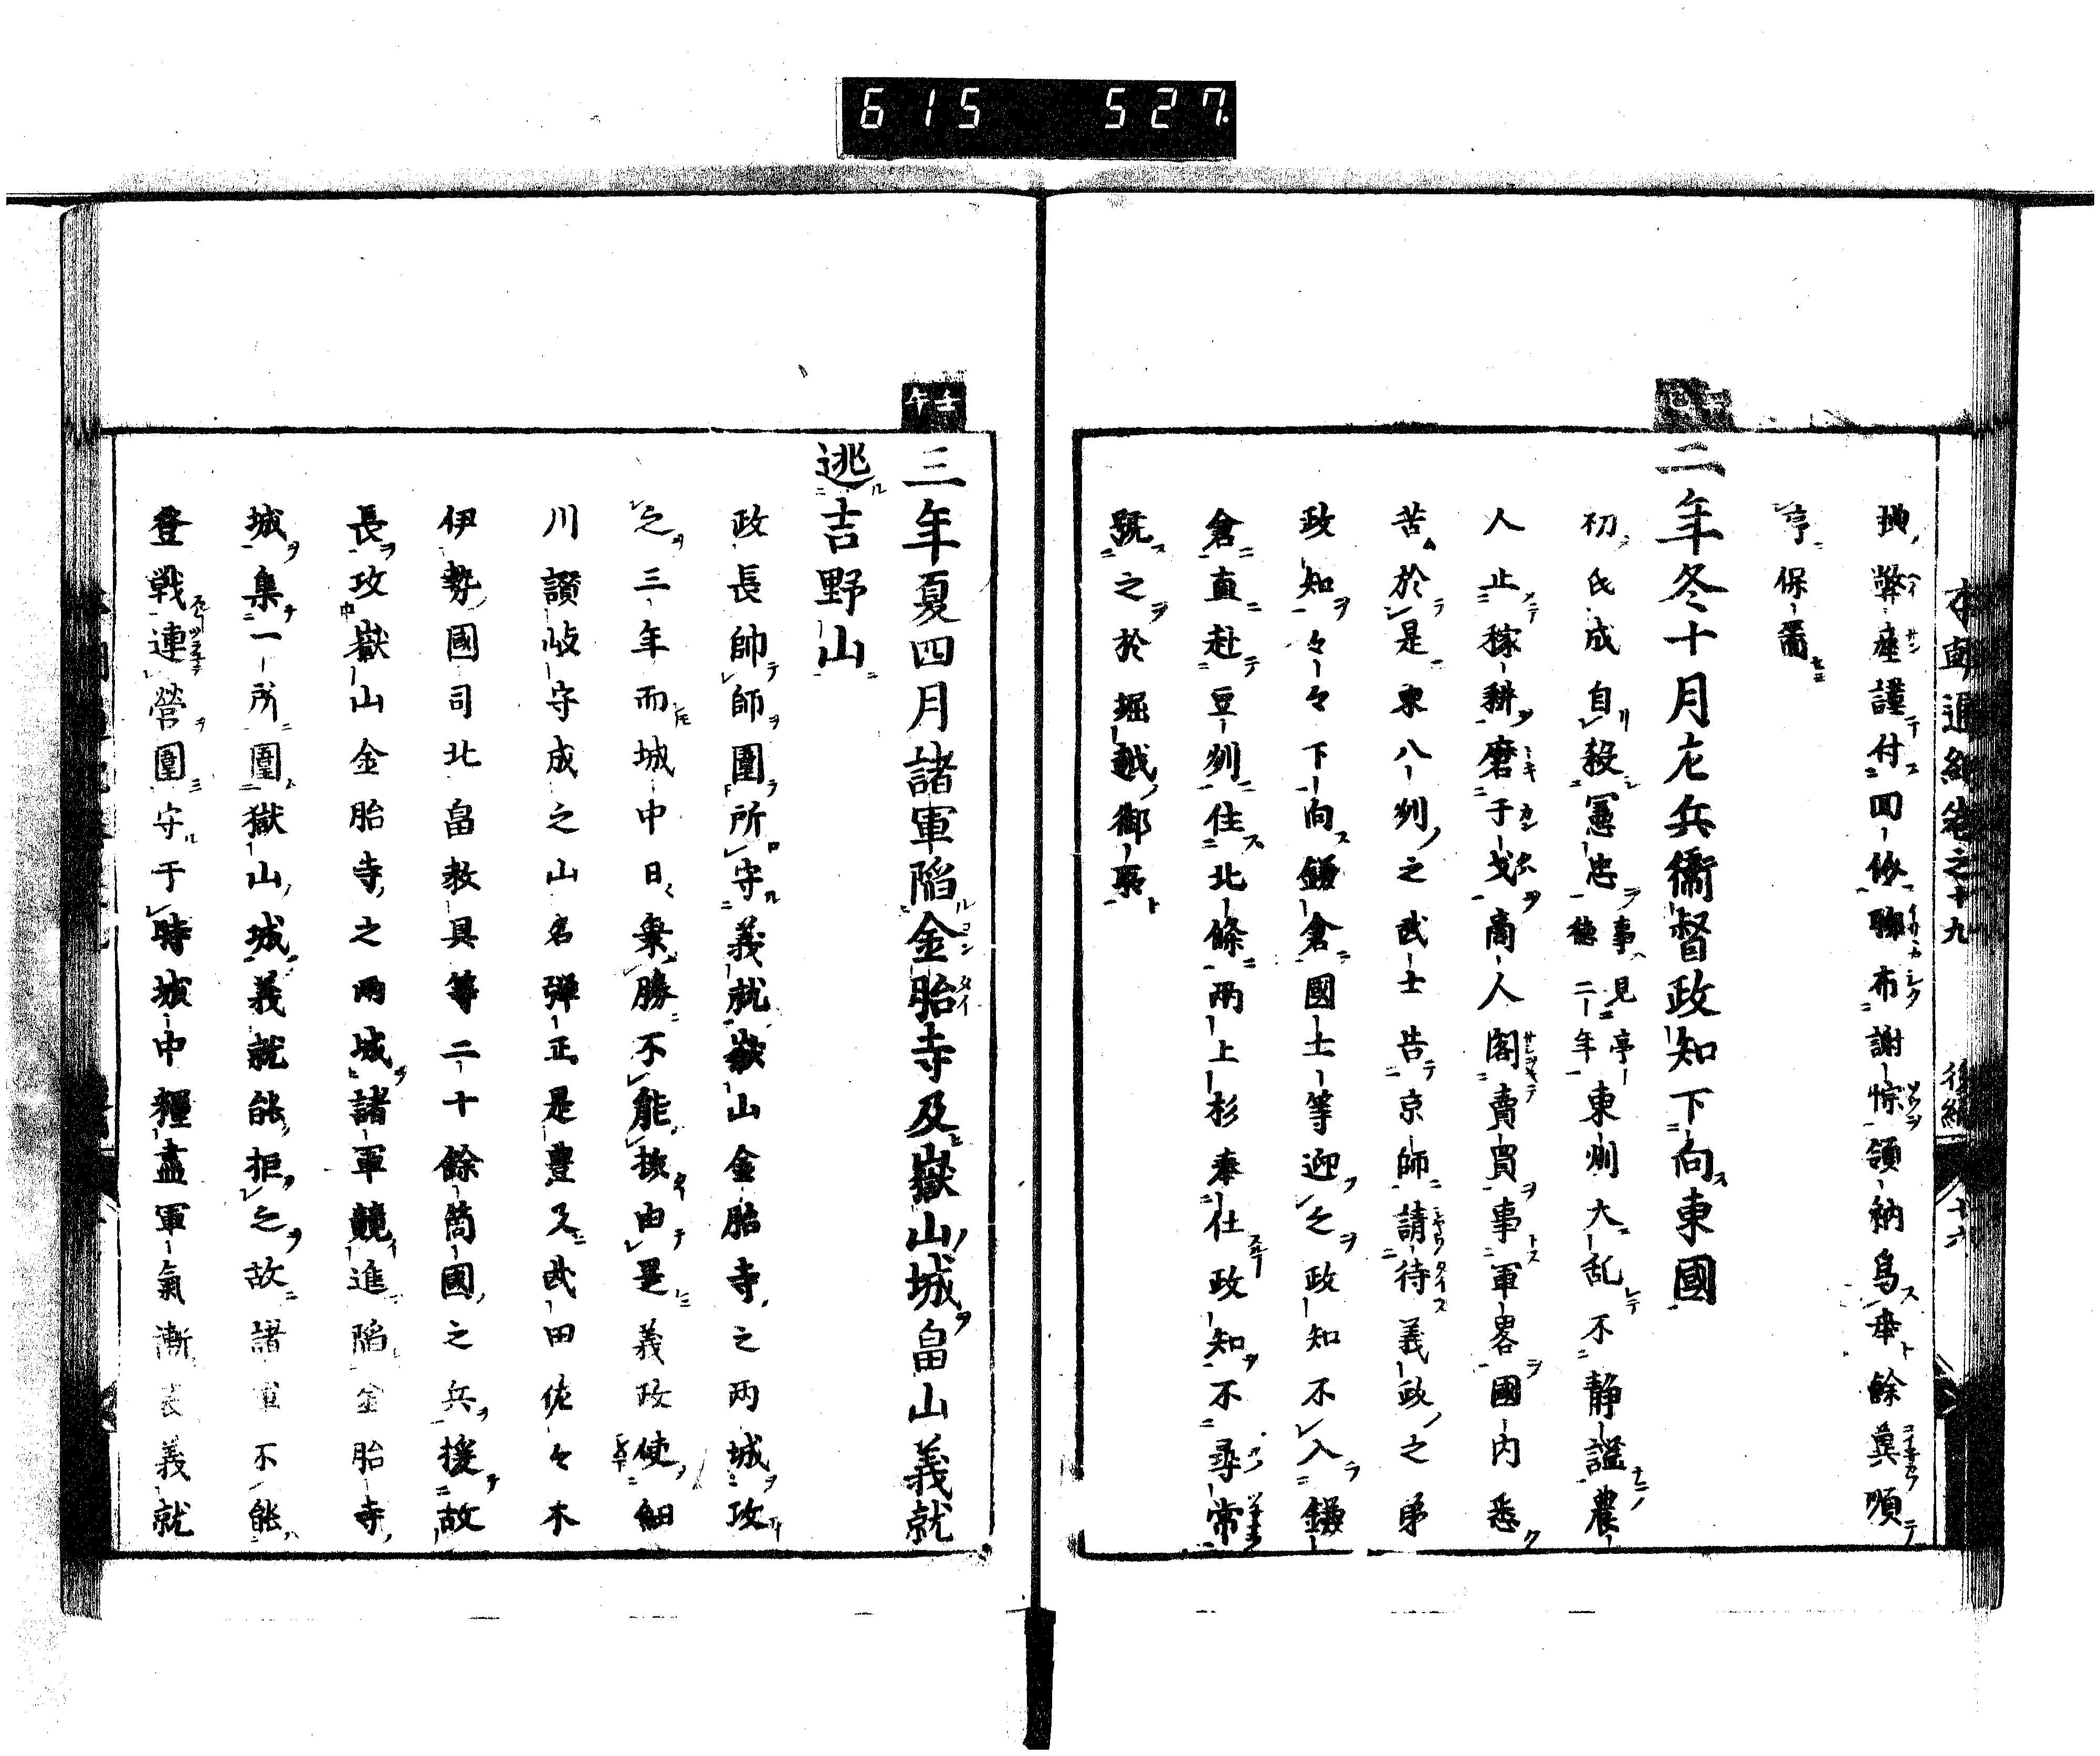 615 527
本朝通紀巻之十九 後編 十六
地弊産謹付回价聊布謝悰領納為幸餘冀順
亨保嗇
辛巳
二年冬十月左兵衛督政知下向東國
初氏成自殺憲忠事見亭徳二年東州大乱不静謐農
人止稼耕磨于戈商人閣賣買事軍畧國内悉
苦於是東八州之武士告京師請待義政之弟
政知々々下向鎌倉國士等迎之政知不入鎌
倉直赴豆州住北條兩上杉奉仕政知不尋常
號之於堀越御所
壬午
三年夏四月諸軍陥金胎寺及嶽山城畠山義就
逃吉野山
政長帥師圍所守義就嶽山金胎寺之両城攻
之三年而城中日乗勝不能拔由是義政使細
川讃岐守成之山名弾正是豊又武田佐々木
伊勢國司北畠教具等二十餘箇國之兵援故
長攻嶽山金胎寺之両城諸軍競進陥金胎寺
城集一所圍嶽山城義就能拒之故諸軍不能
登戦連營圍守于時城中糧盡軍氣漸衰義就